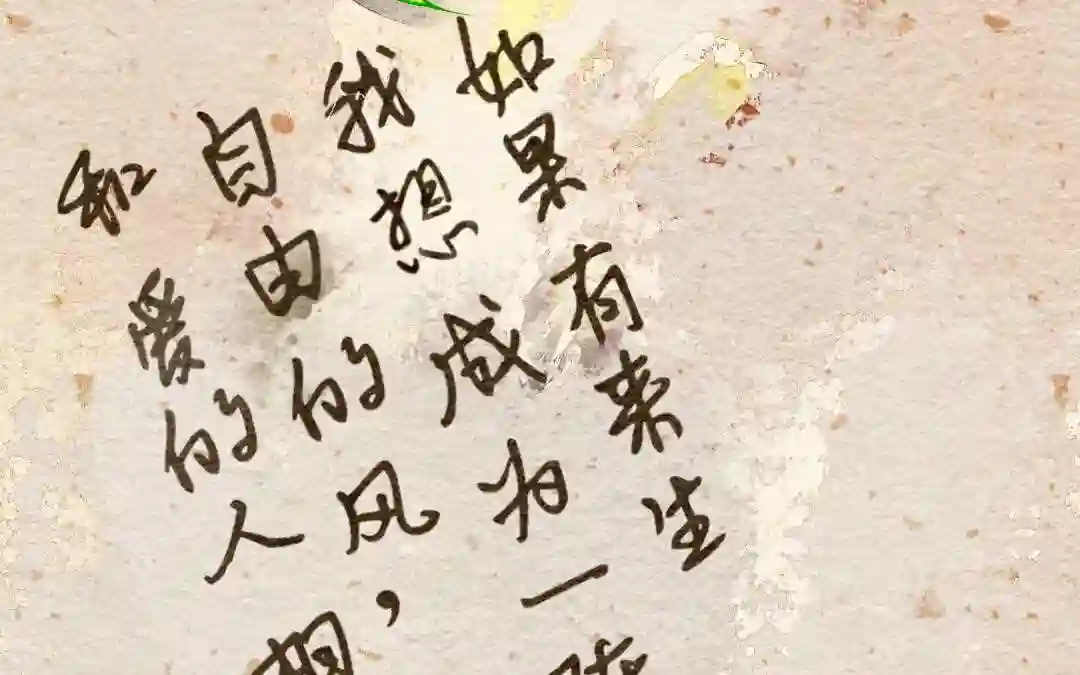 如果有来生
我想成为一
自由的风，
和爱的人